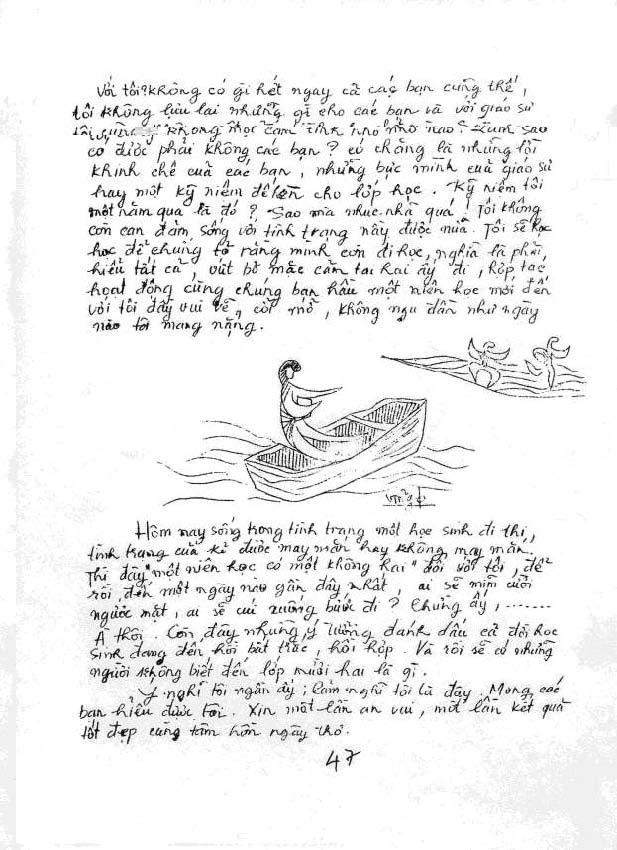 Với tôi? Không có gì hết ngay cả các bạn cũng thế,
tôi không lưu lại những gì cho các bạn và với giáo sư
không một cảm tình nhỏ nhỏ nào? Làm sao
có được phải không các bạn? có chăng là những lời
khinh chê của các bạn, những bực mình của giáo sư
hay một kỷ niệm để lên cho lớp học. Kỷ niệm tôi
một năm qua là đó? Sao mỉa nhục nhã quá! Tôi không
còn can đảm sống với tình trạng này được nữa. Tôi sẽ học
học để chứng tỏ rằng mình còn đi học, nghĩa là phải,
hiểu tất cả, vứt bỏ mặc cảm tai hại ấy đi, hợp tác
hoạt động cùng chung bạn hầu một niên học mới đến
với tôi đầy vui vẻ, cởi mở, không ngu đần như ngày
nào tôi mang nặng.
Hôm nay sống trong tình trạng một học sinh đi thi,
tình trạng của kẻ được may mắn hay không may mắn.
Thì đây "một niên học có một không hai" đối với tôi, để
rồi đến một ngày nào gần đây nhất, ai sẽ mỉm cười
ngước mặt, ai sẽ cúi xuống bước đi? Chừng ấy, .......
À thôi. Còn đây những ý tưởng đánh dấu cả đời học
sinh đang đến hồi bất trắc, hồi hộp. Và rồi sẽ có những
người không biết đến lớp mười hai là gì.
Ý nghĩ tôi ngắn ấy; cảm nghĩ tôi là đây. Mong các
bạn hiểu được tôi. Xin một lần an vui, một lần kết quả
tốt đẹp cùng tâm hồn ngây thơ.
47